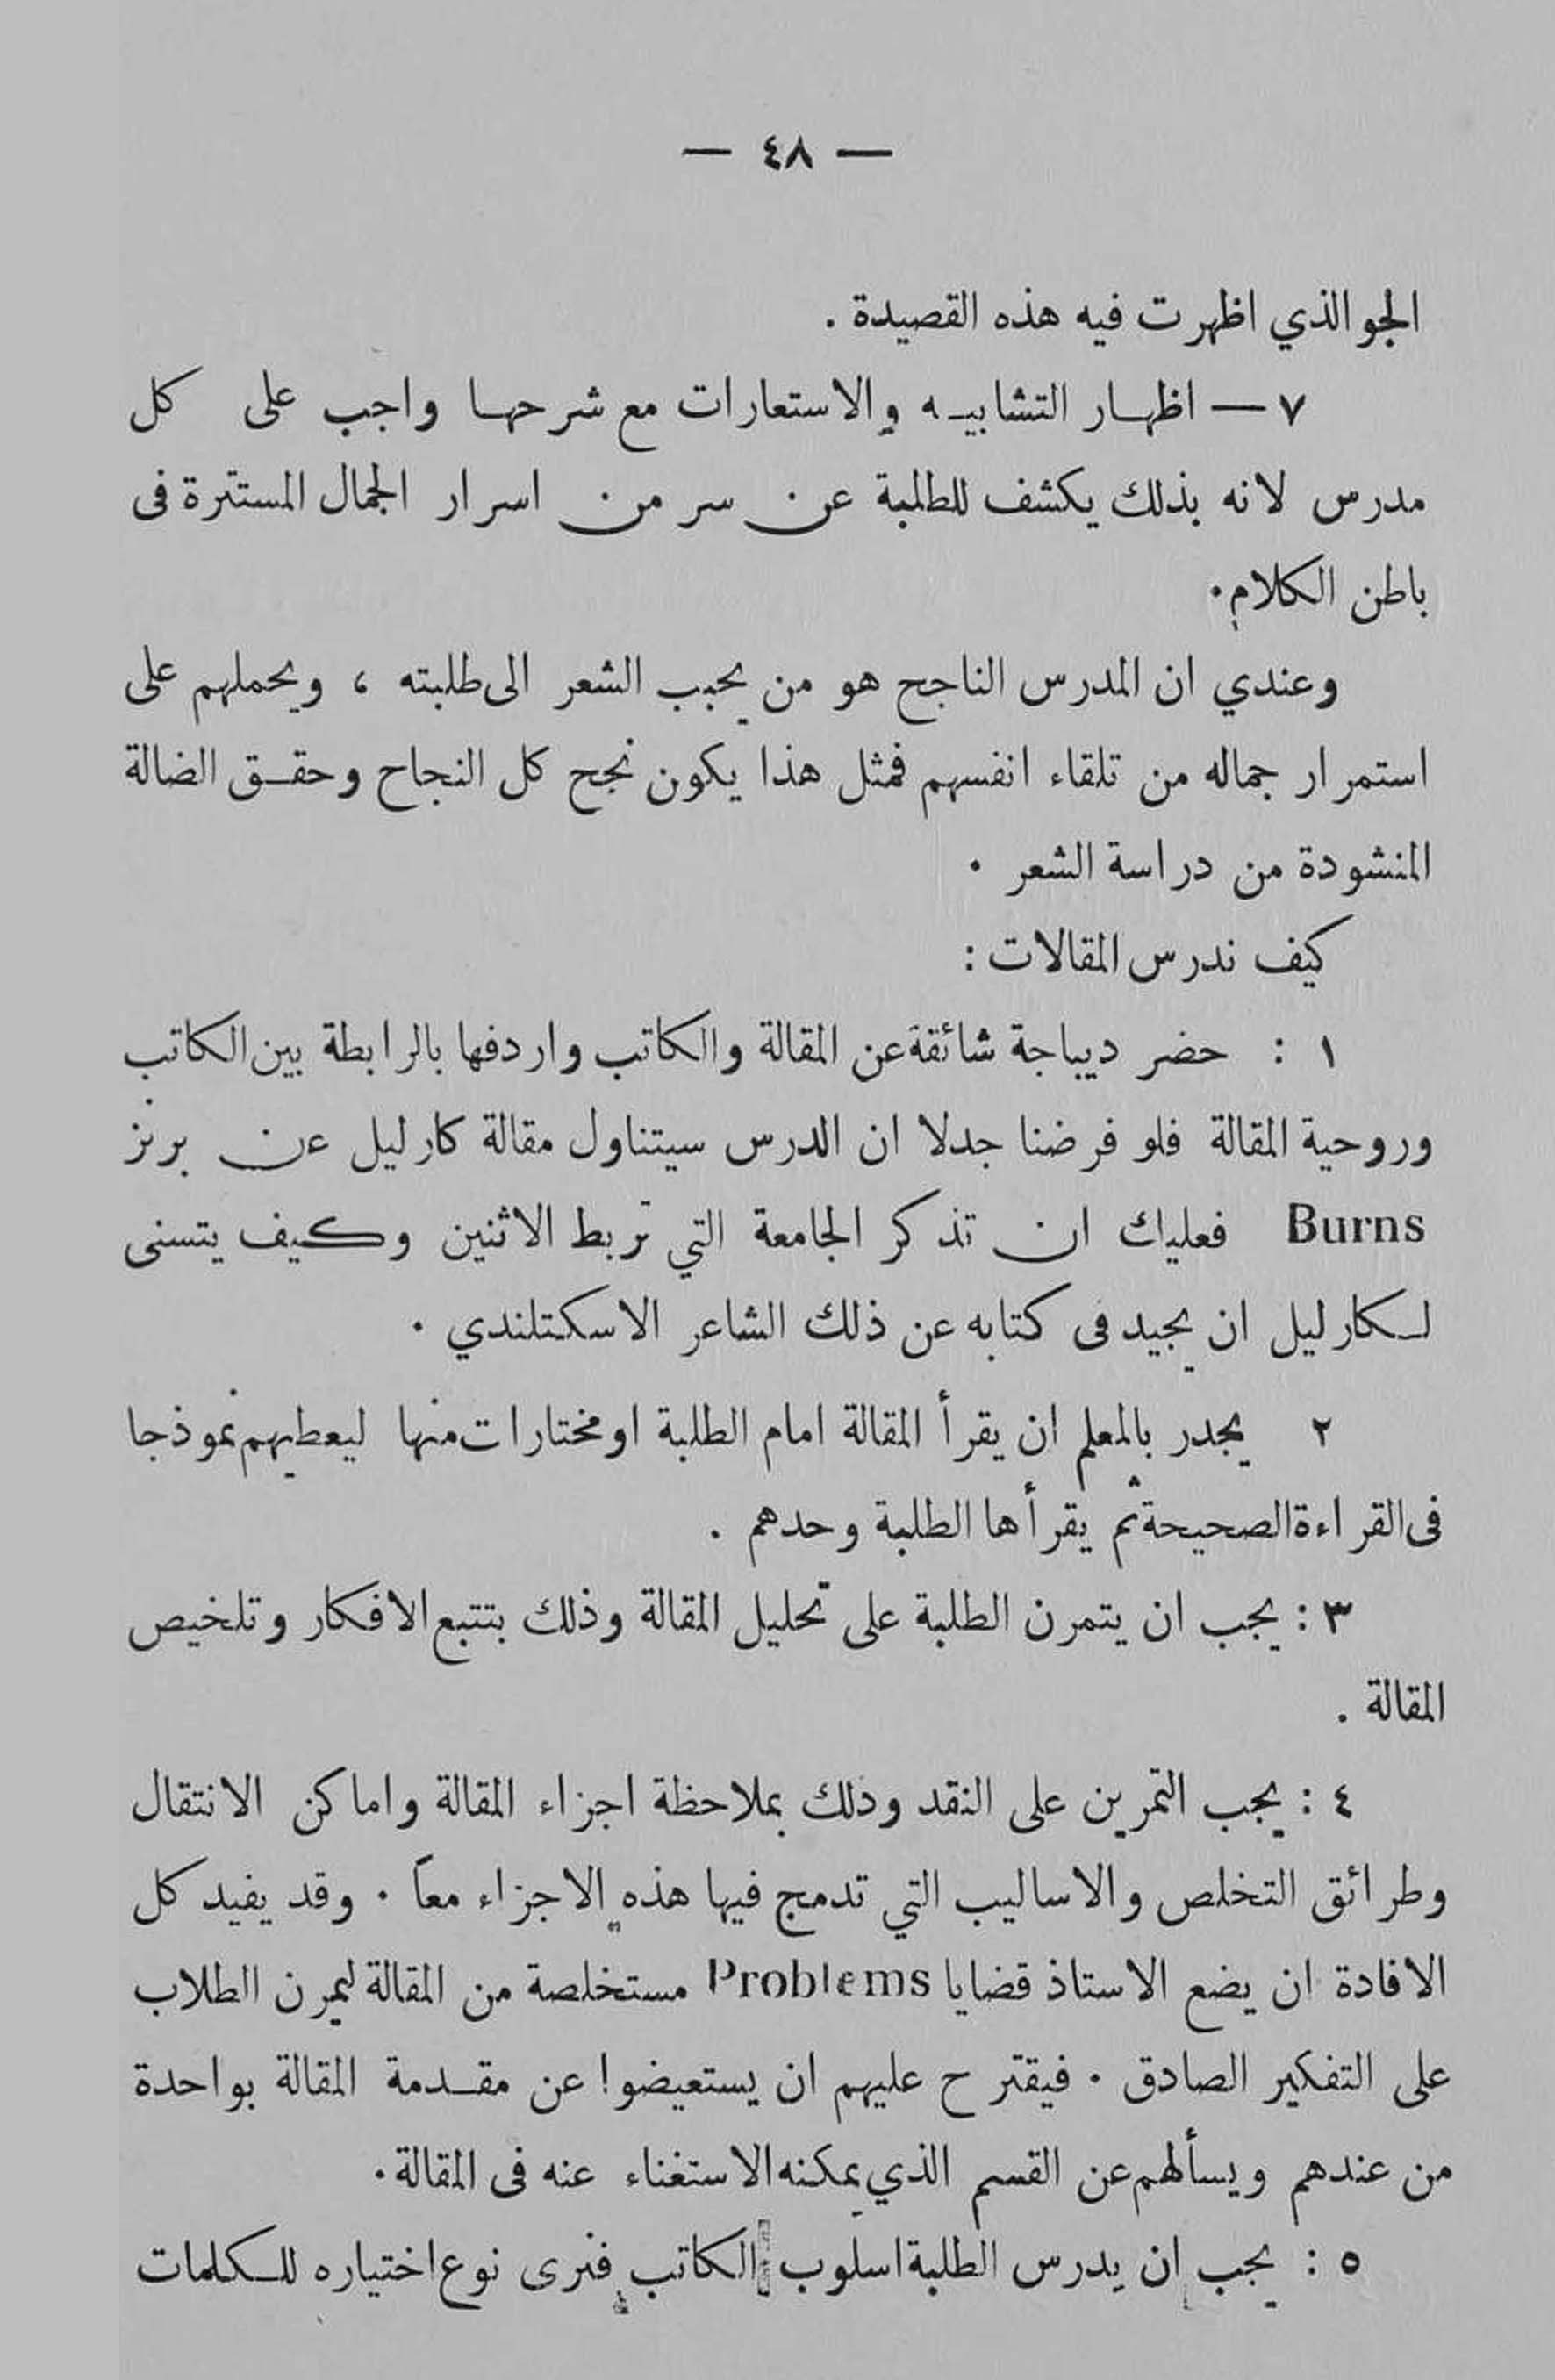 — ٤٨ —
الجو الذي اظهرت فيه هذه القصيدة .
٧ — اظهار التشابيه والاستعارات مع شرحها واجب على كل
مدرس لانه بذلك يكشف للطلبة عن سر من اسرار الجمال المستترة فى
باطن الكلام .
وعندي ان المدرس الناجح هو من يحبب الشعر الى طلبته ، ويحملهم على
استمرار جماله من تلقاء انفسهم فمثل هذا يكون نجح كل النجاح وحقق الضالة
المنشودة من دراسة الشعر .
كيف ندرس المقالات :
١ : حضر ديباجة شائقة عن المقالة والكاتب واردفها بالرابطة بين الكاتب
وروحية المقالة فلو فرضنا جدلا ان الدرس سيتناول مقالة كارليل عن برنز
Burns فعليك ان تذكر الجامعة التي تربط الاثنين وكيف يتسنى
لكارليل ان يجيد فى كتابه عن ذلك الشاعر الاسكتلندي .
٢ يجدر بالمعلم ان يقرأ المقالة امام الطلبة او مختارات منها ليعطيهم نموذجا
فى القراءة الصحيحة ثم يقرأها الطلبة وحدهم .
٣ : يجب ان يتمرن الطلبة على تحليل المقالة وذلك بتتبع الافكار وتلخيص
المقالة .
٤ : يجب التمرين على النقد وذلك بملاحظة اجزاء المقالة واماكن الانتقال
وطرائق التخلص والاساليب التي تدمج فيها هذه الاجزاء معاً . وقد يفيد كل
الافادة ان يضع الاستاذ قضايا Problems مستخلصة من المقالة ليمرن الطلاب
على التفكير الصادق . فيقترح عليهم ان يستعيضوا عن مقدمة المقالة بواحدة
من عندهم ويسألهم عن القسم الذي يمكنه الاستغناء عنه فى المقالة .
٥ : يجب ان يدرس الطلبة اسلوب الكاتب فنرى نوع اختياره للكلمات